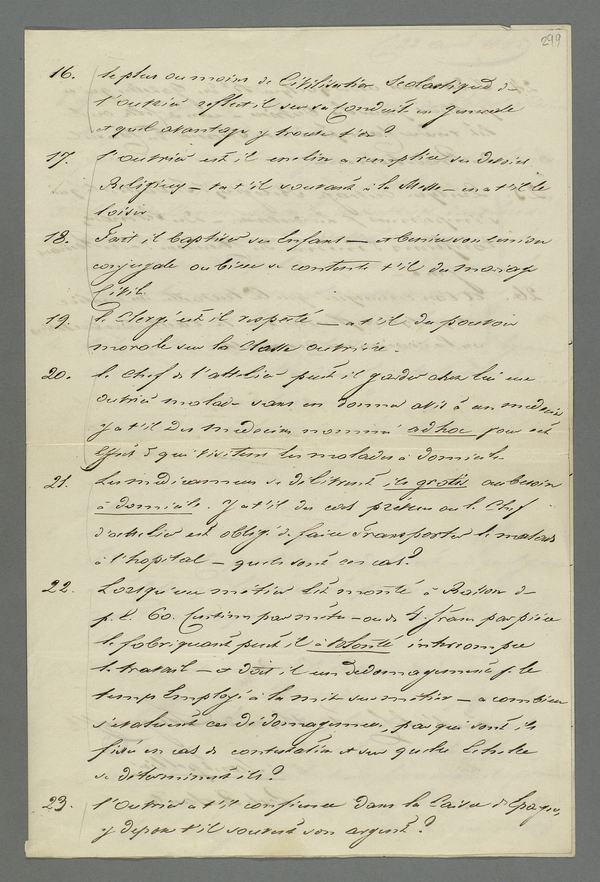 299
16. le plus ou moins de Civilisation Scolastique de
l'ouvrier reflect il sur sa Conduite en generale
et quel avantage y trouve t'on?
17. l'ouvrier est il enclin a remplir ses devoirs
Religieux — va t'il souvent à la Messe — en a t'il le
loisir
18. Fait il baptiser ses Enfants — et benir son union
conjugale ou bien se contente t'il du mariage
Civil.
19. le Clergé est il respecté — a t'il du pouvoir
morale sur la Classe ouvrière.
20. le Chef de l'attelier peut il garder chez lui un
ouvrier malade sans en donner avis à un medecin
y a t'il des medecins nommé ad hoc pour cet
effet & qui visitent les malades à domicile
21. Les medicamens se délivrent ils gratis au besoin
à domicile. y a t'il des cas prévus ou le Chef
d'attelier est obligé de faire transporter le malade
à l'hopital — quels sont ces cas?
22. Lorsqu'un métier est monté à Raison de
p. E. 60. Centimes par mètre — ou de 4 francs par pièce
le fabriquant peut il à volonté interrompre
le travail — et doit il un dedomagement p. le
temps Employé à la mise sur métier — a combien
s'évaluent ces dédomagemens, par qui sont ils
fixés en cas de contestation et sur quelle Echelle
se déterminent ils?
23. l'ouvrier a t'il confiance dans la Caisse d'Epargne,
y depose t'il souvent son argent?